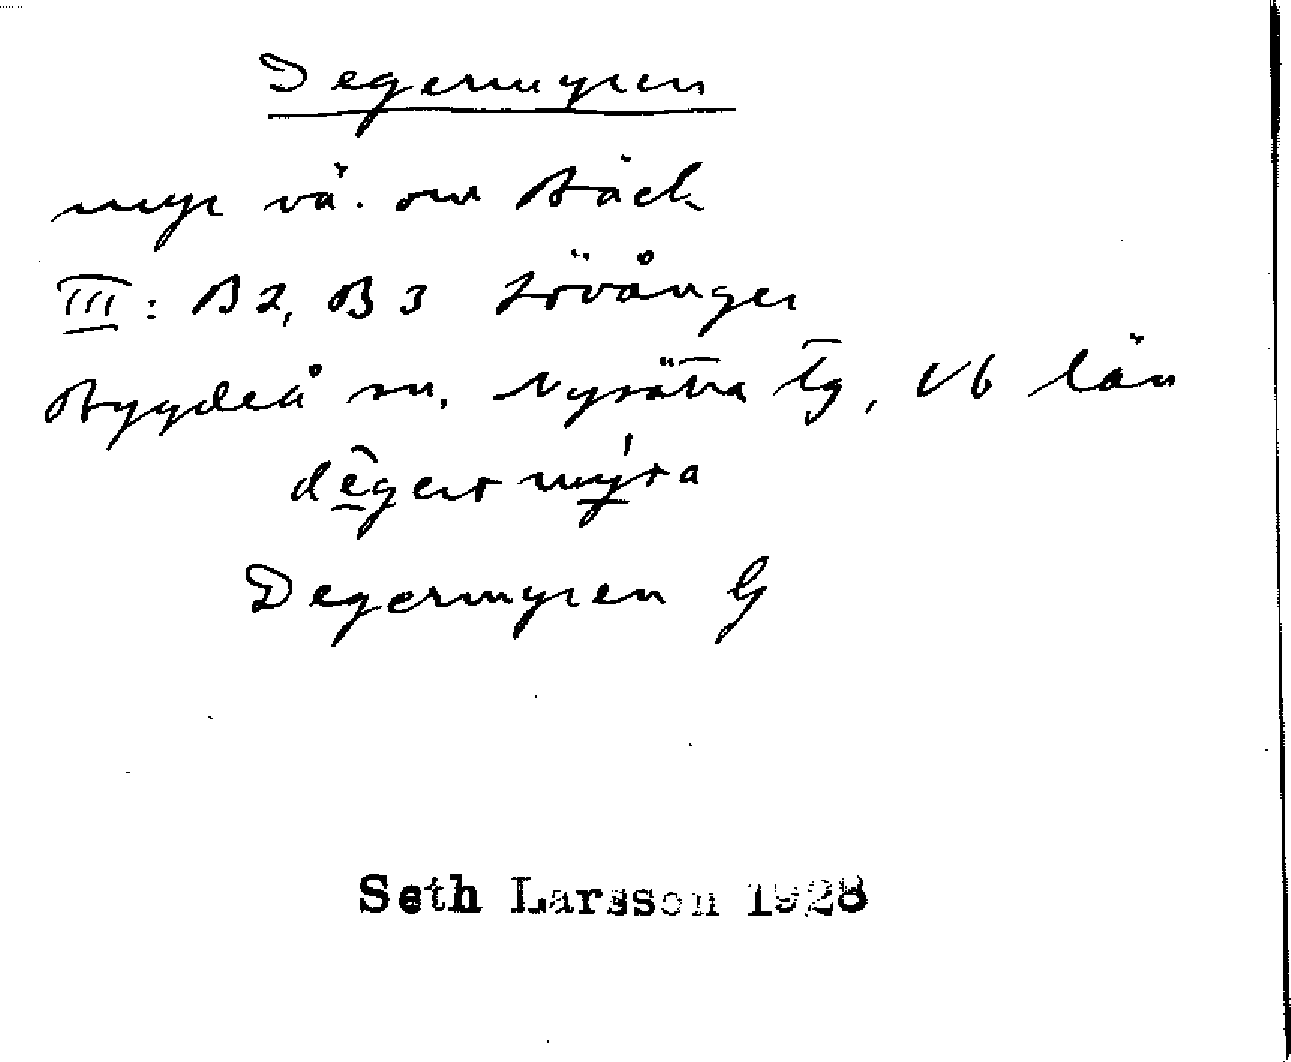 Degermyren
myr vä. om Bäck
III: B2, B3 Lövånger
Bygdeå sn. Nysätra tg, Vb län
dēger mýra
Degermyren G
Seth Larsson 1928